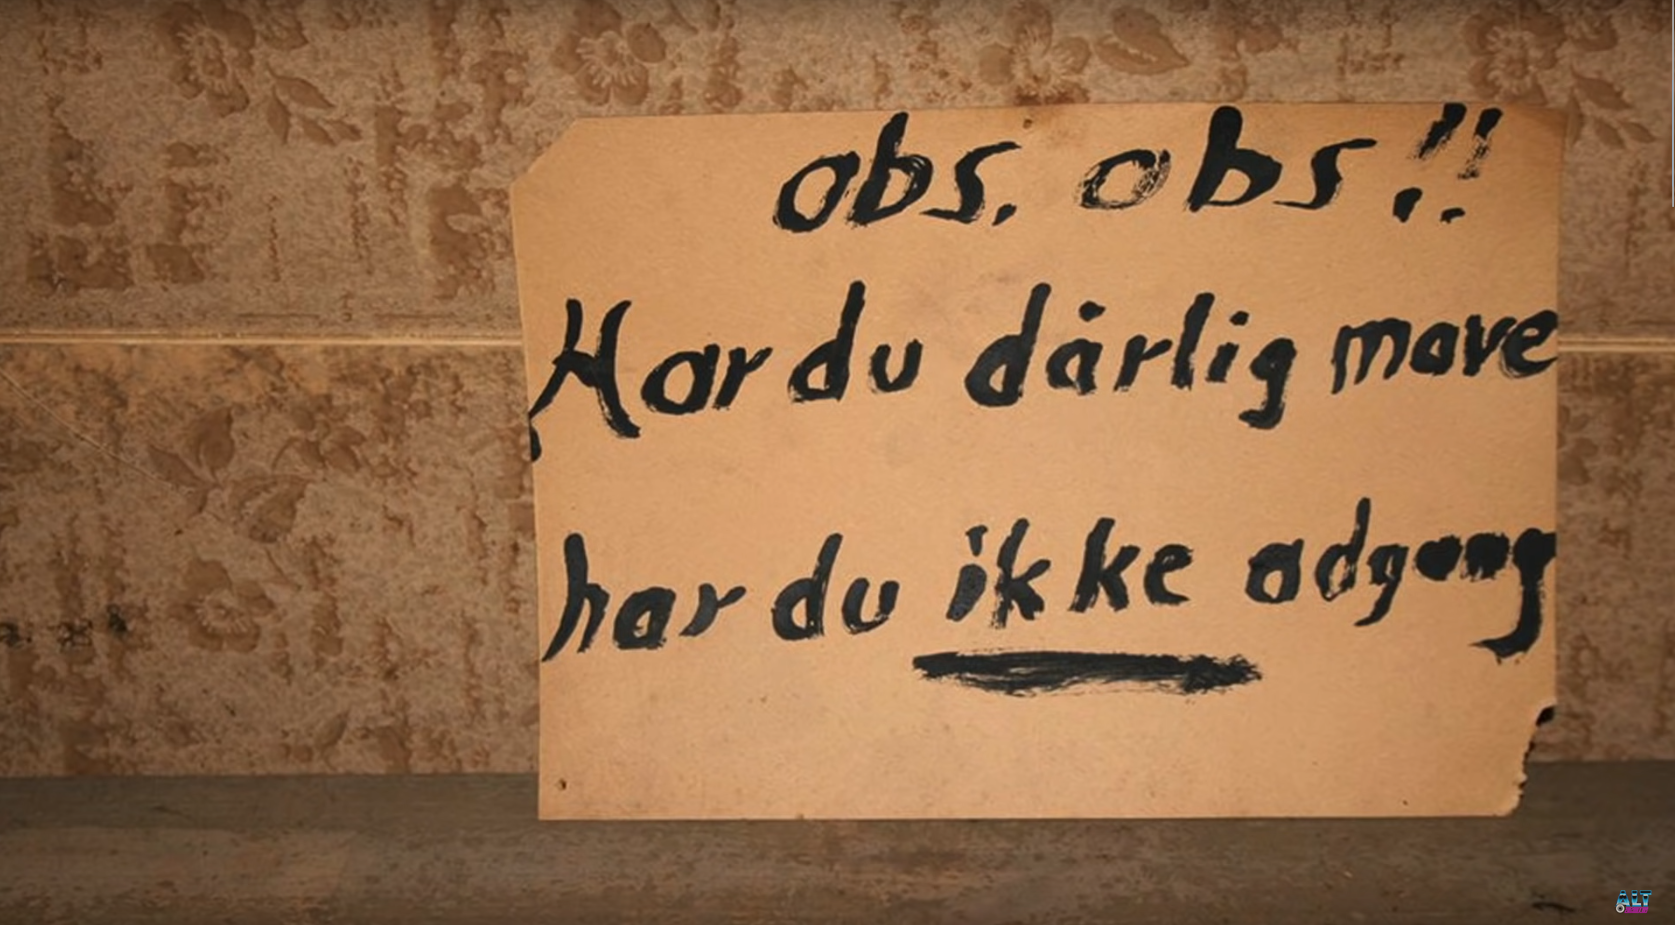 obs. obs!!
Har du dårlig mave
har du ikke adgang
ALT